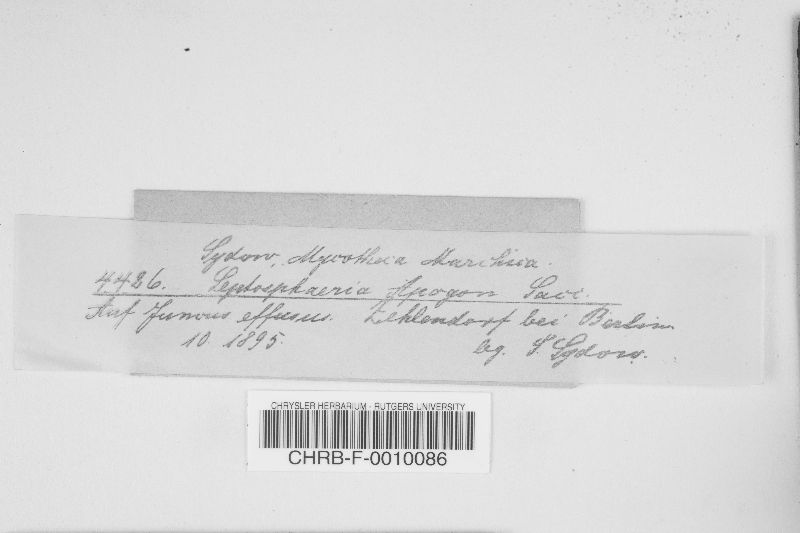 Sydow, Mycotheca Marchica.
4426. Leptosphaeria Apogon Sacc.
Auf Juncus effusus. Zehlendorf bei Berlin
10. 1895. leg. P. Sydow.
CHRYSLER HERBARIUM - RUTGERS UNIVERSITY
CHRB-F-0010086